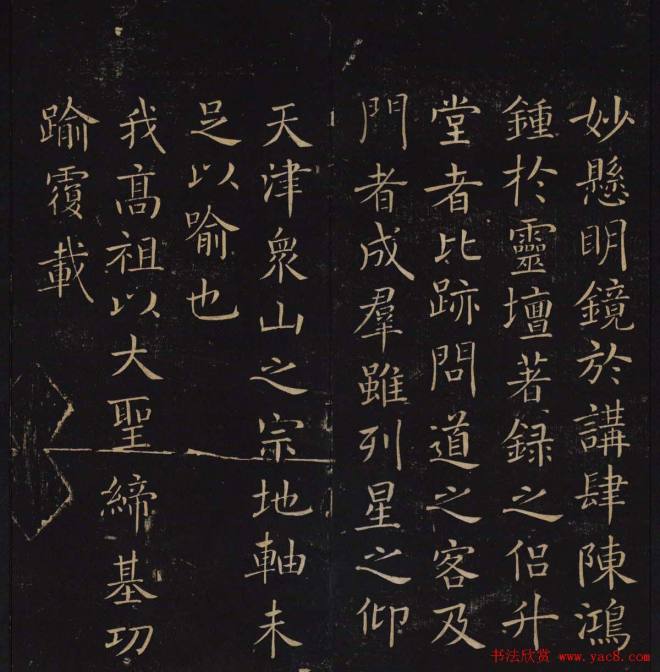 妙懸明鏡於講肆陳鴻
鍾於靈壇著録之侣升
堂者比跡問道之客及
門者成羣雖列星之仰
天津衆山之宗地軸未
足以喻也
我高祖以大聖締基功
踰覆載
书法欣赏 www.yac8.com